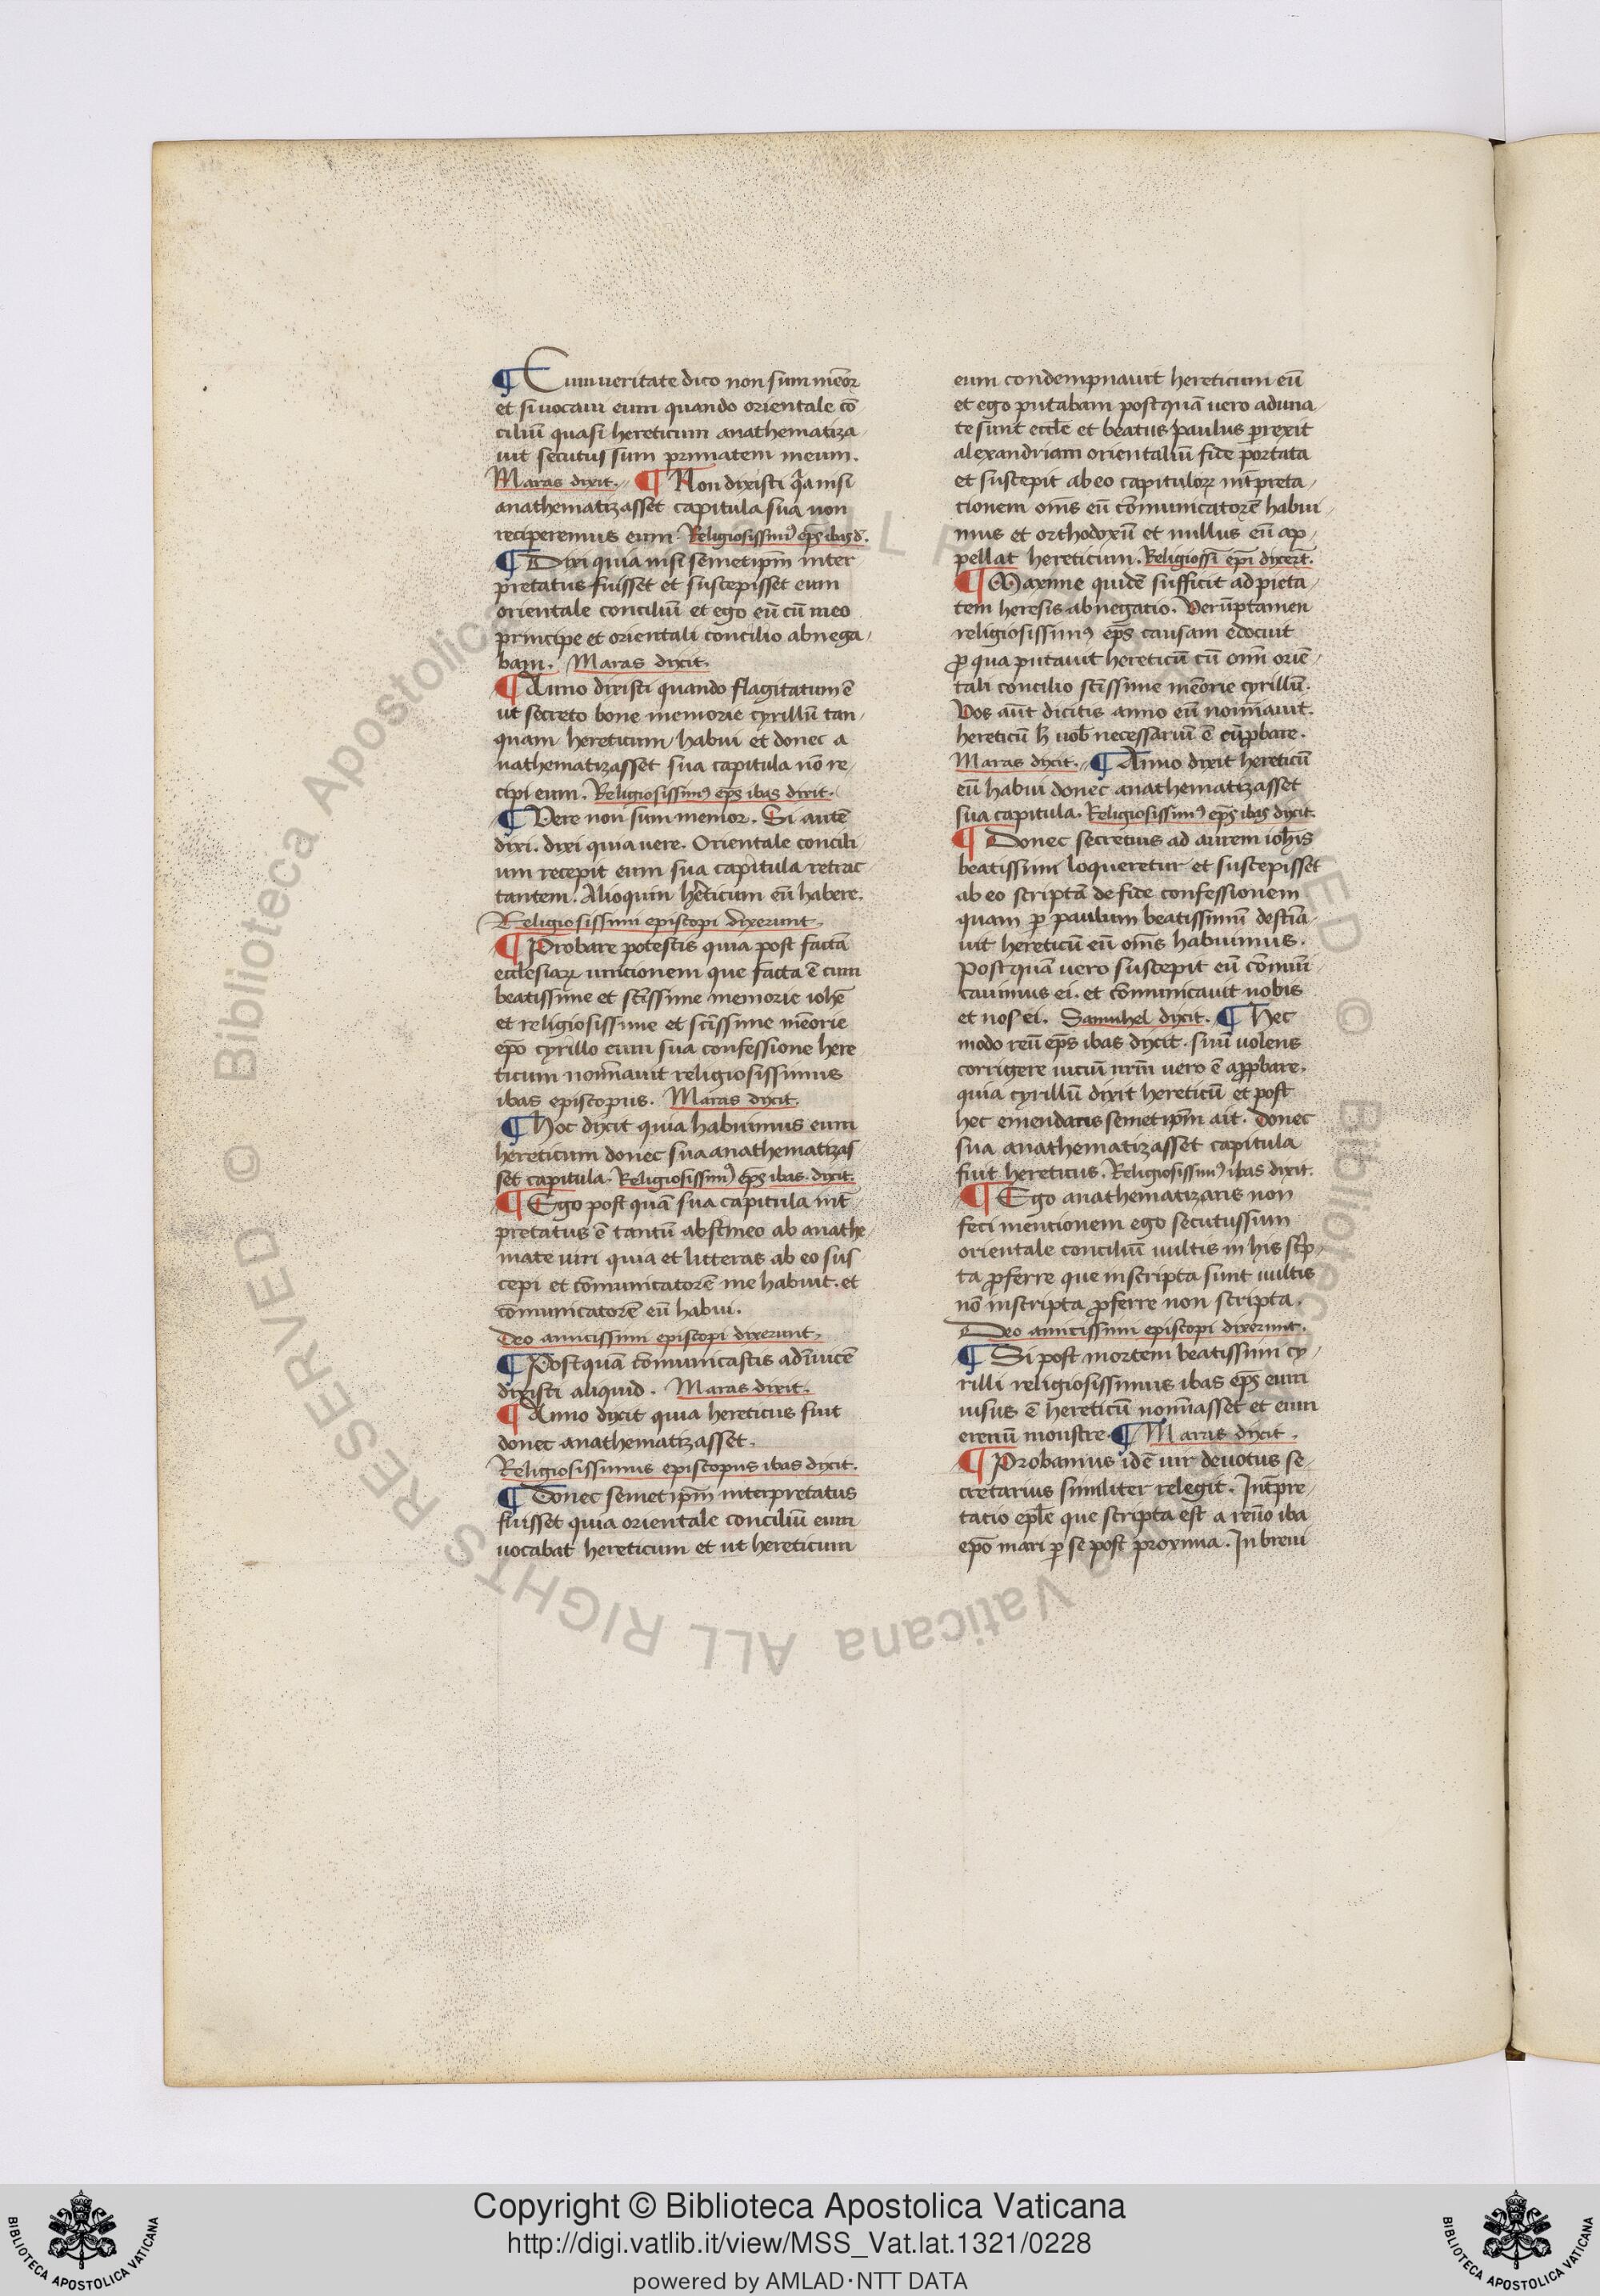 ¶ Cum ueritate dico non sum mēor
et si uocaui eum quando orientale cō
ciliū quasi hereticum anathematiza
uit secutus sum primatem meum.
Maras dixit. ¶ Non dixisti qa nisi
anathematizasset capitula sua non
reciperemus eum. Religiosissimꝰ ep̄s ibas d̄.
¶ Dixi quia nisi semetip̄m inter
pretatus fuisset et suscepisset eum
orientale conciliū et ego eū cū meo
principe et orientali concilio abnega
bam. Maras dixit.
¶ Anno dixisti quando flagitatum ē
ut secreto bone memorie cyrillū tan
quam hereticum habui et donec a
nathematizasset sua capitula nō re
cipi eum. Religiosissimꝰ ep̄s ibas dixit.
¶ Vere non sum memor. Si autē
dixi. dixi quia uere. Orientale concili
um recepit eum sua capitula retrac
tantem. Alioquin he͛ticum eū habere.
Religiosissimi episcopi dixerunt.
¶ Probare potestis quia post factā
ecclesiaꝝ unitionem que facta ē cum
beatissime et sc̄issime memorie iohē
et religiosissime et sc̄issime mēorie
ep̄o cyrillo eum sua confessione here
ticum noīnauit religiosissimus
ibas episcopus. Maras dixit.
¶ Hoc dixit quia habuimus eum
hereticum donec sua anathematizas
set capitula. Religiosissimꝰ ep̄s ibas. dixit.
¶ Ego post quā sua capitula int̄
pretatus ē tantū abstineo ab anathe
mate uiri quia et litteras ab eo sus
cepi et cōmunicatorē me habuit. et
cōmunicatorē eū habui.
Deo amicissimi episcopi dixerunt.
¶ Postquā cōmunicastis adīuicē
dixisti aliquid. Maras dixit.
¶ Anno dixit quia hereticus fuit
donec anathematizasset.
Religiosissimus episcopus ibas dixit.
¶ Donec semetip̄m interpretatus
fuisset quia orientale conciliū eum
uocabat hereticum et ut hereticum
eum condempnauit hereticum eū
et ego putabam postquā uero aduna
te sunt eccl̄e et beatus paulus ꝑrexit
alexandriam orientaliū fide portata
et suscepit ab eo capituloꝝ int̄preta
tionem om̄s eū cōmunicatorē habui
mus et orthodoxū et nullus eū ap
pellat hereticum. Religiossi ep̄i dixer̄t.
¶ Maxime quidē sufficit ad pieta
tem heresis abnegatio. Verūptamen
religiosissimꝰ ep̄s causam edocuit
ꝓ qua putauit hereticū cū om̄i oriē
tali concilio sc̄issime mēorie cyrillū.
Vos aūt dicitis anno eū noīnauit.
hereticū h̄ uob̄ necessariū ē cū ꝓbare.
Maras dixit. ¶ Anno dixit hereticū
eū habui donec anathematizasset
sua capitula. Religiosissimꝰ ep̄s ibas dixit.
¶ Donec secretius ad aurem ioh̄is
beatissimi loqueretur et suscepisset
ab eo scriptā de fide confessionem
quam ꝑ paulum beatissimū destīa
uit hereticū eū om̄s habuimus.
Postquā uero suscepit eū cōmūi
cauimus ei. et cōmunicauit nobis
et nos ei. Samuhel dixit. ¶ Hec
modo reū ep̄s ibas dixit. siuī uolens
corrigere uiciū nr̄m uero ē aꝓbare.
quia cyrillū dixit hereticū et post
hec emendatis semetip̄m ait. Donec
sua anathematizasset capitula
fuit hereticus. Religiosissimꝰ ibas dixit.
¶ Ego anathematizatis non
feci mentionem ego secutussum
orientale conciliū uultis in his sc̄p
ta ꝓferre que inscripta sunt uultis
nō inscripta ꝓferre non scripta.
Deo amicissimi episcopi dixerunt.
¶ Si post mortem beatissimi cy
rilli religiosissimus ibas ep̄s eum
uisus ē hereticū noīnasset et eum
ereticū monstre. ¶ Maras dixit.
¶ Probamus idē uir deuotus se
cretarius similiter relegit. Int̄pre
tatio epl̄e que scripta est a reūo iba
ep̄o mari ꝑ se post proxima. In breui
© Biblioteca Apostolica Vaticana ALL RIGHTS RESERVED
Copyright © Biblioteca Apostolica Vaticana
http://digi.vatlib.it/view/MSS_Vat.lat.1321/0228
powered by AMLAD·NTT DATA
BIBLIOTECA APOSTOLICA VATICANA
BIBLIOTECA APOSTOLICA VATICANA